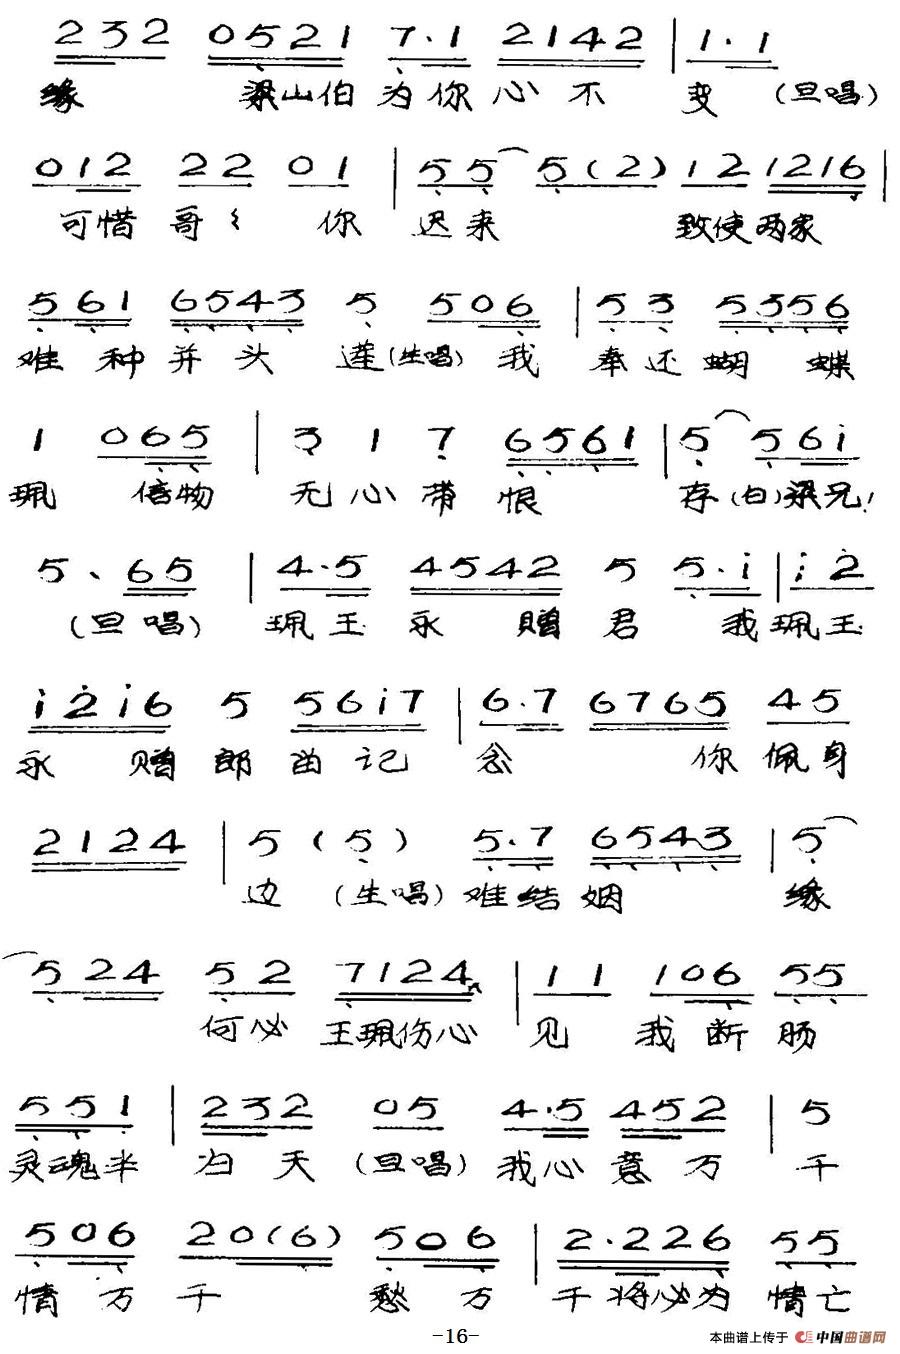 232 0521 7·1 2142 | 1·1
缘 梁山伯为你心不 变 (旦唱)
012 22 01 | 55 5(2) 12 1216 |
可惜 哥〻 你 迟来 致使两家
561 6543 5 506 | 53 5356
难种并头 莲(生唱)我 奉还蝴蝶
1 065 | 3 1 7 6561 | 5 56i
珮 信物 无心带恨 存(白)梁兄!
5、65 | 4·5 4542 5 5·i | i2
(旦唱) 珮玉永赠君 我珮玉
i2i6 5 56i7 | 6·7 6765 45
永赠郎留记 念 你佩身
2124 | 5 (5) 5·7 6543 | 5
边 (生唱)难结姻 缘
524 52 7124 | 11 106 55
何必 玉珮伤心 见 我断肠
551 | 232 05 4·5 452 | 5
灵魂半 归天 (旦唱) 我心意万 千
506 20(6) 506 | 2·226 55
情万 千 愁万 千将必为情亡
-16-
本曲谱上传于 中国曲谱网